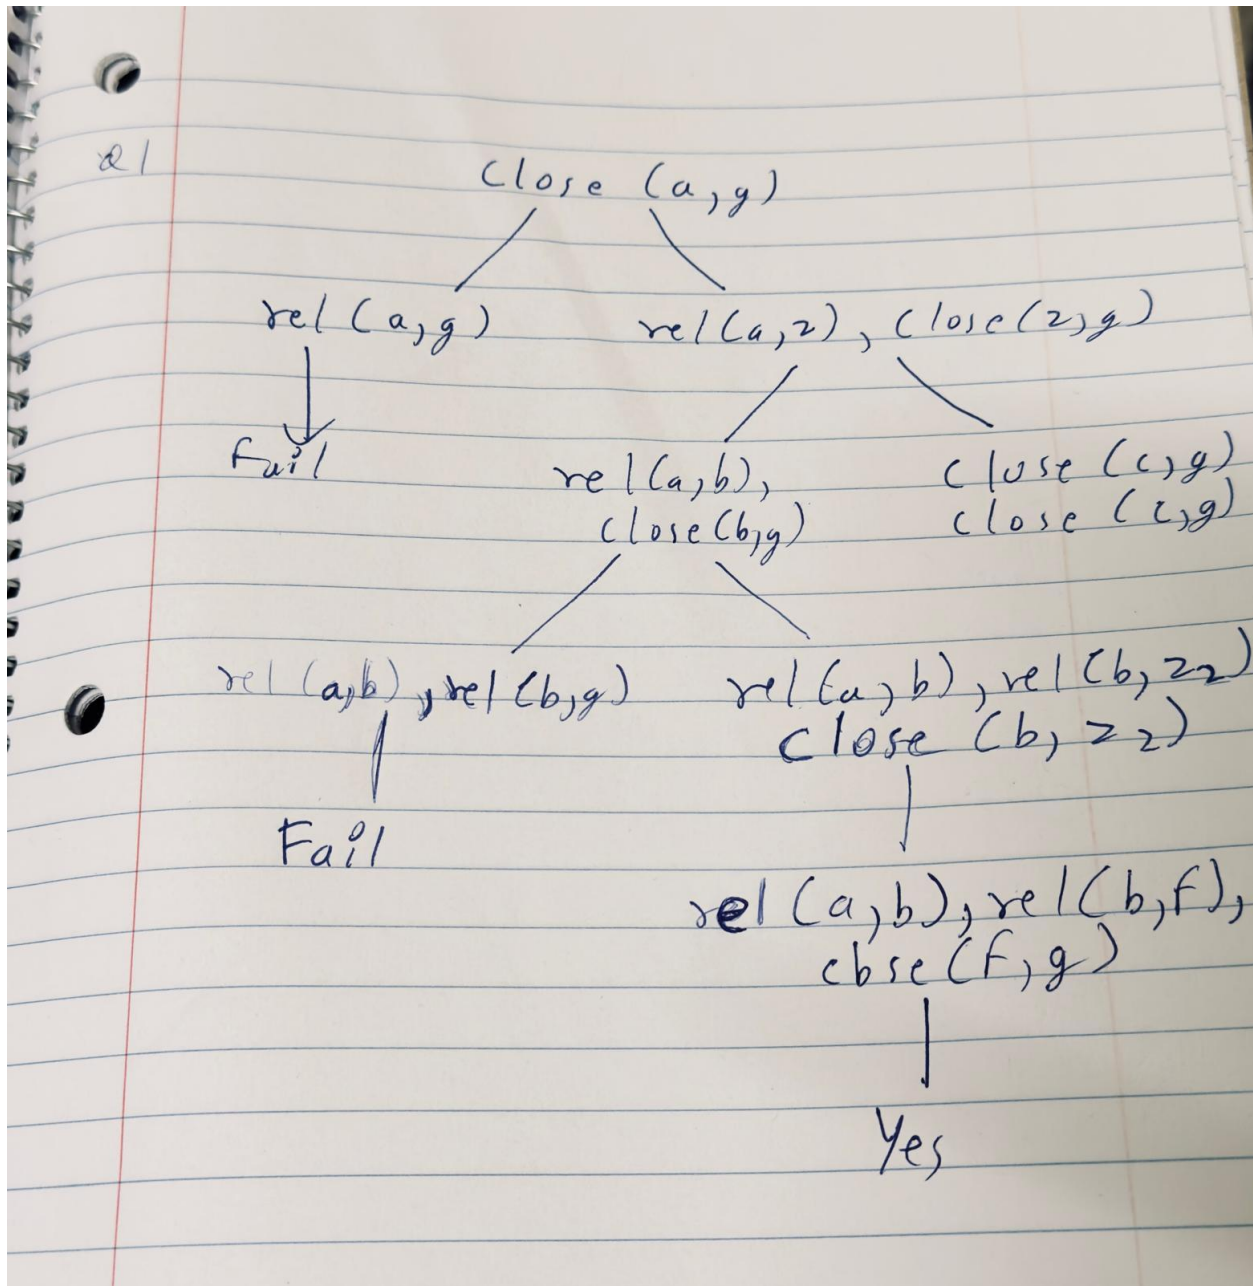 Q1
close (a,g)
rel (a,g) rel(a,z), close(z,g)
Fail rel(a,b), close (c,g)
close(b,g) close (c,g)
rel (a,b), rel (b,g) rel (a,b), rel (b, z2)
close (b, z2)
Fail
rel (a,b), rel (b,f),
close (f,g)
Yes